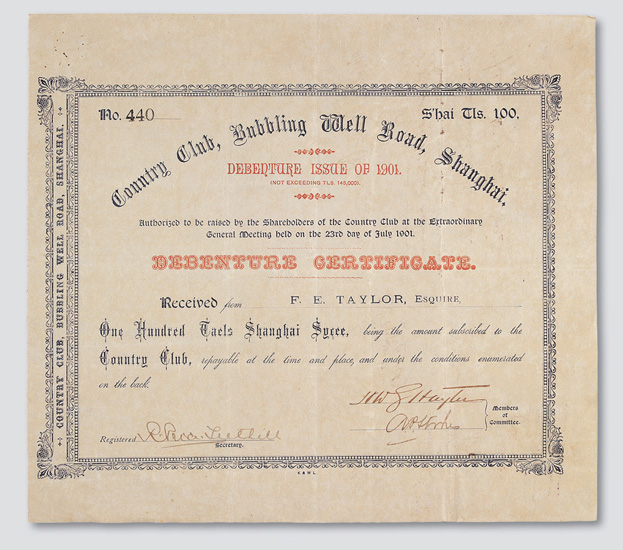 No. 440
S'hai Tls. 100.
Country Club, Bubbling Well Road, Shanghai.
DEBENTURE ISSUE OF 1901.
(NOT EXCEEDING TLS. 145,000).
Authorized to be raised by the Shareholders of the Country Club at the Extraordinary
General Meeting held on the 23rd day of July 1901.
DEBENTURE CERTIFICATE.
Received from F. E. TAYLOR, ESQUIRE,
One Hundred Taels Shanghai Sycee, being the amount subscribed to the
Country Club, repayable at the time and place, and under the conditions enumerated
on the back.
Members
of
Committee.
Registered
Secretary.
K & W L.
COUNTRY CLUB, BUBBLING WELL ROAD, SHANGHAI.